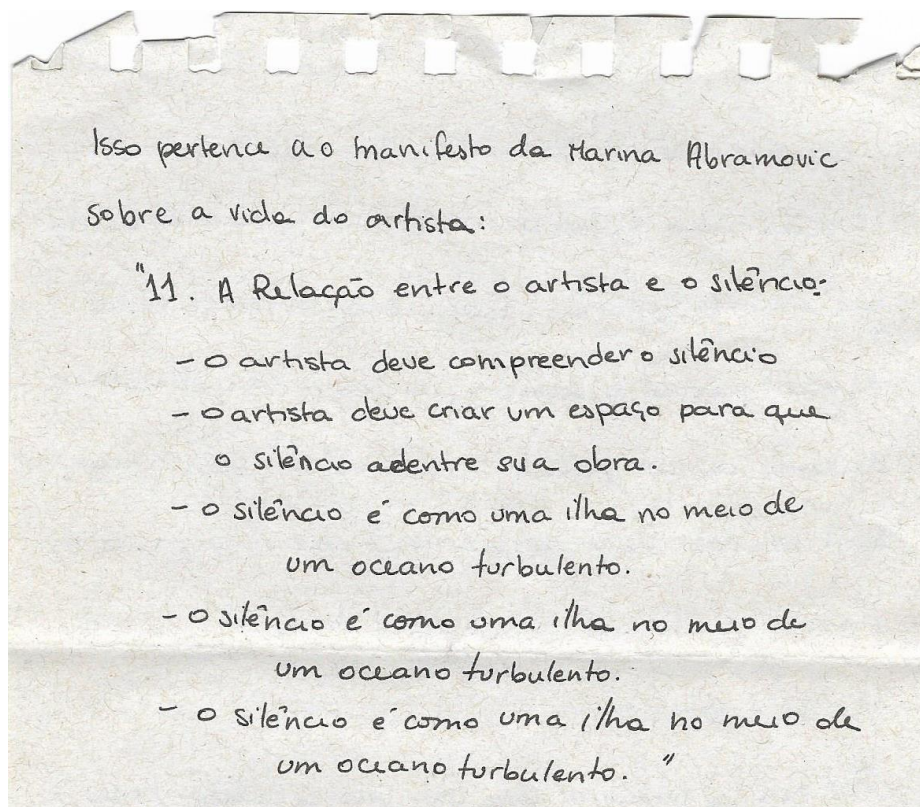 Isso pertence ao manifesto da Marina Abramovic
sobre a vida do artista:
"11. A Relação entre o artista e o silêncio:
- o artista deve compreender o silêncio
- o artista deve criar um espaço para que
o silêncio adentre sua obra.
- o silêncio é como uma ilha no meio de
um oceano turbulento.
- o silêncio é como uma ilha no meio de
um oceano turbulento.
- o silêncio é como uma ilha no meio de
um oceano turbulento."